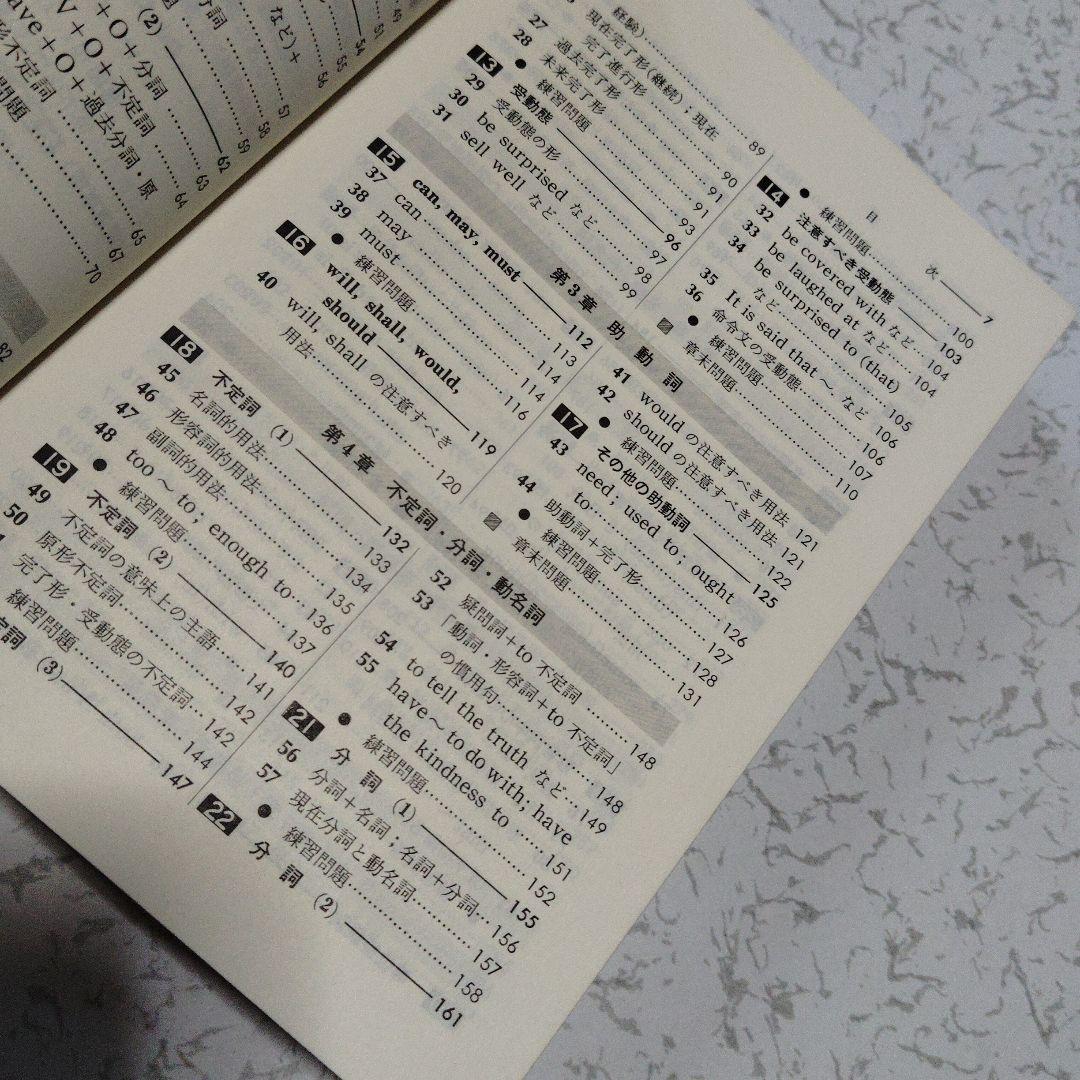 目 次 7
経験)
27 現在完了形(継続);現在
完了進行形 89
28 過去完了形 90
未来完了形 91
● 練習問題 91
13 受動態 93
29 受動態の形 96
30 be surprised など 97
31 sell well など 98
99
● 練習問題 100
14 注意すべき受動態 103
32 be covered with など 104
33 be laughed at など 104
34 be surprised to (that)
など 105
35 It is said that ~ など 106
36 命令文の受動態 106
● 練習問題 107
章末問題 110
第3章 助動詞
15 can, may, must 112
37 can 113
38 may 114
39 must 114
● 練習問題 116
16 will, shall, would,
should 119
40 will, shall の注意すべき
用法 120
41 would の注意すべき用法 121
42 should の注意すべき用法 121
● 練習問題 122
17 その他の助動詞 125
43 need, used to, ought
to 126
44 助動詞+完了形 127
● 練習問題 128
章末問題 131
第4章 不定詞・分詞・動名詞
18 不定詞 (1) 132
45 名詞的用法 133
46 形容詞的用法 134
47 副詞的用法 135
48 too ~ to, enough to 136
● 練習問題 137
19 不定詞 (2) 140
49 不定詞の意味上の主語 141
50 原形不定詞 142
完了形・受動態の不定詞 142
練習問題 144
定詞 (3) 147
52 疑問詞+to 不定詞 148
53 「動詞・形容詞+to 不定詞」
の慣用句 148
54 to tell the truth など 149
55 have~to do with; have
the kindness to 151
● 練習問題 152
21 分詞 (1) 155
56 分詞+名詞;名詞+分詞 156
57 現在分詞と動名詞 157
● 練習問題 158
22 分詞 (2) 161
(2)
O+分詞
V+O+不定詞
ave+O+過去分詞・原
形不定詞
問題
など)+
49
54
56
57
58
59
62
63
64
65
67
70
82